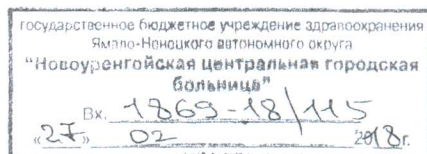 государственное бюджетное учреждение здравоохранения
Ямало-Ненецкого автономного округа
"Новоуренгойская центральная городская
больница"
Вх. 1869-18/115
«27» 02 2018г.